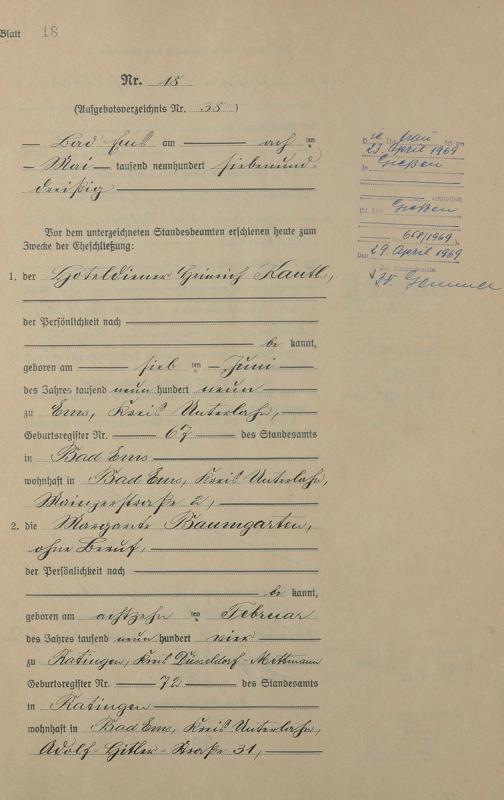 Blatt 18
Nr. 18
(Aufgebotsverzeichnis Nr. 38)
Bad Ems am acht ten
Mai tausend neunhundert siebenund-
dreißig
Vor dem unterzeichneten Standesbeamten erschienen heute zum
Zwecke der Eheschließung:
1. der Hoteldiener Heinrich Kautl,
der Persönlichkeit nach
be kannt,
geboren am sieb ten Juni
des Jahres tausend neun hundert neun
zu Ems, Kreis Unterlahn,
Geburtsregister Nr. 67 des Standesamts
in Bad Ems
wohnhaft in Bad Ems, Kreis Unterlahn,
Mainzerstraße 2,
2. die Margarete Baumgarten,
ohne Beruf,
der Persönlichkeit nach
be kannt,
geboren am achtzehn ten Februar
des Jahres tausend neun hundert vier
zu Ratingen, Kreis Düsseldorf-Mettmann
Geburtsregister Nr. 72 des Standesamts
in Ratingen
wohnhaft in Bad Ems, Kreis Unterlahn,
Adolf-Hitler-Straße 31,
frau ist am
23. April 1969
in Gießen
verstorben
St. Amt Gießen
651/1969
Den 29. April 1969